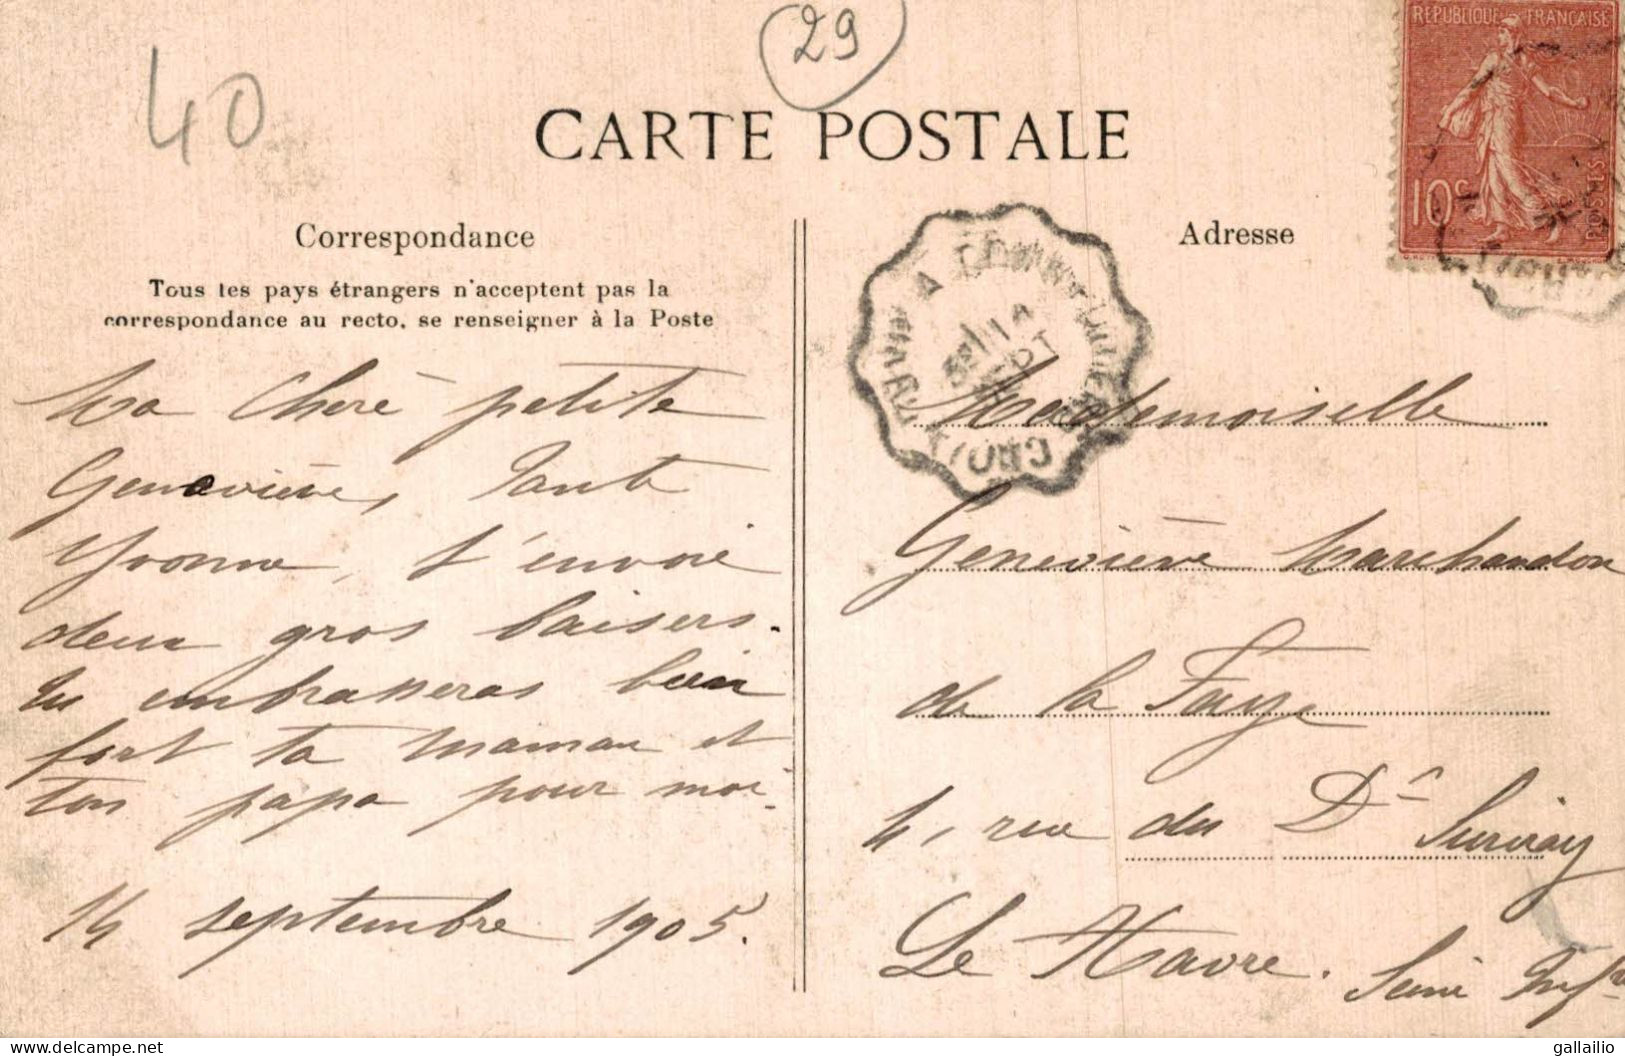 40
29
CARTE POSTALE
RÉPUBLIQUE FRANÇAISE
10c
POSTES
Correspondance
Tous les pays étrangers n'acceptent pas la
correspondance au recto, se renseigner à la Poste
Ma Chère petite
Geneviève, Tante
Yvonne, t'envoie
deux gros baisers.
tu embrasseras bien
fort ta maman et
ton papa pour moi.
14 septembre 1905.
Adresse
14
SEPT
CROIX
Mademoiselle
Geneviève Marchandon
de la Faye
4, rue du Dr Suriray
Le Havre. Seine Infre
gallailio